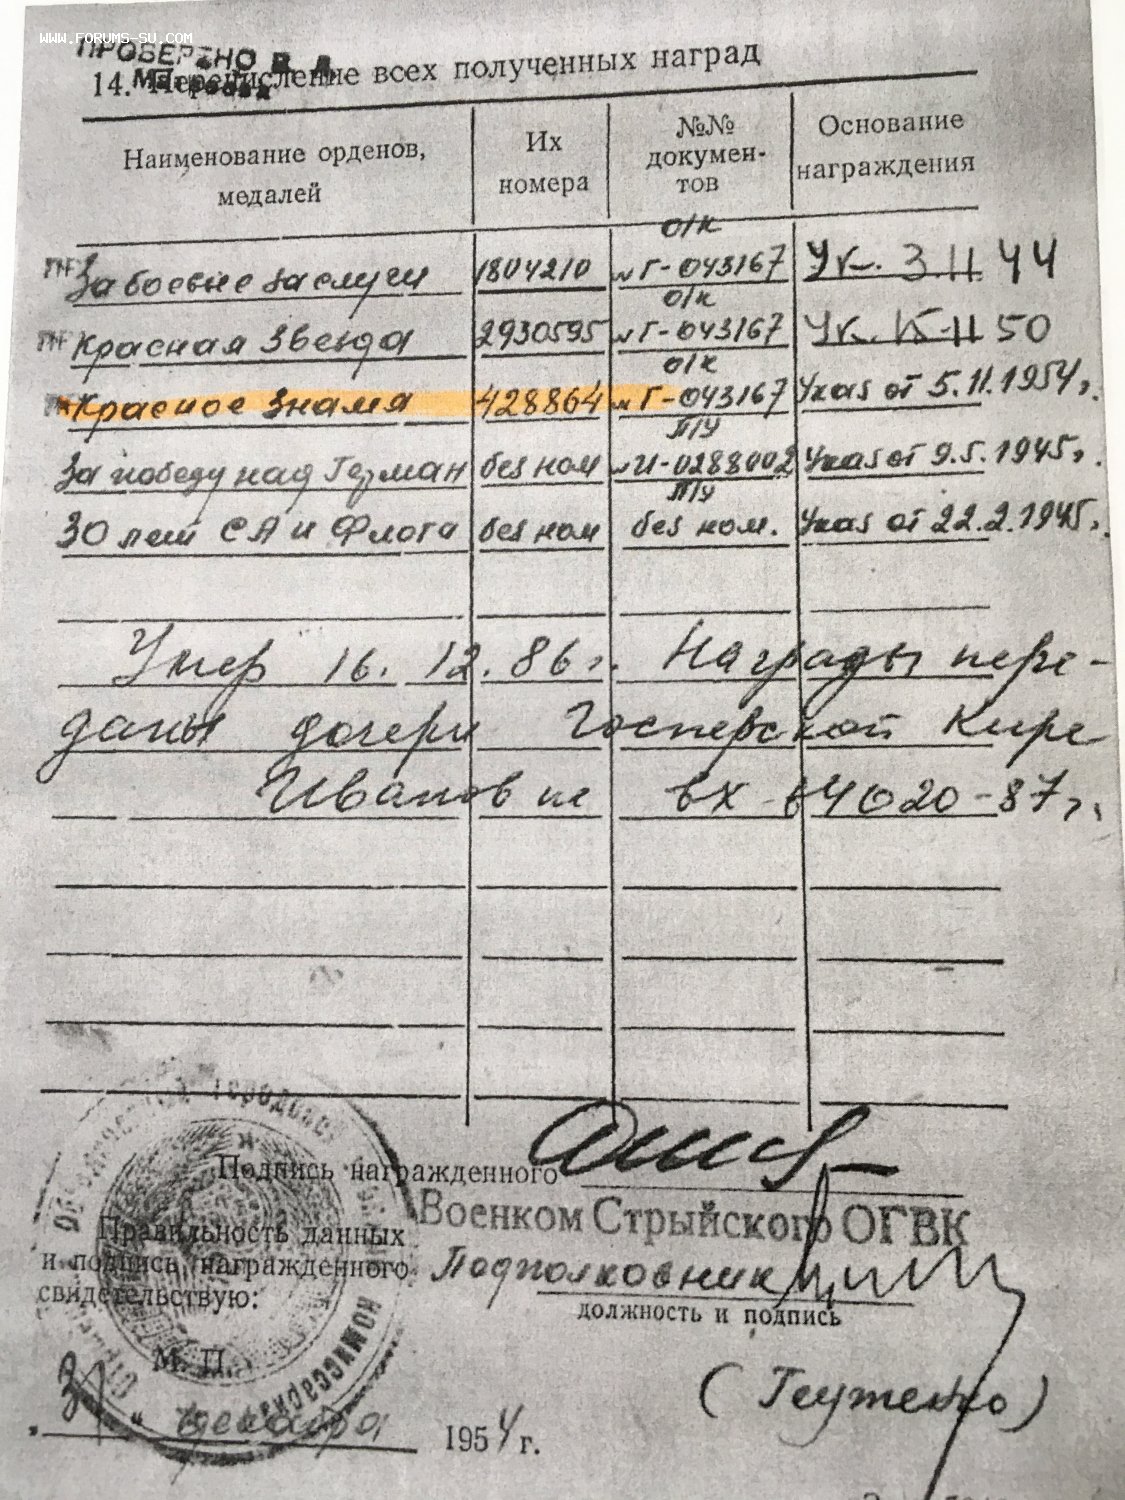 WWW.FORUMS-SU.COM
ПРОВЕРЕНО
14. Перечисление всех полученных наград
Наименование орденов, медалей
Их номера
№№ документов
Основание награждения
о/к
За боевые заслуги 1804210 Г-043167 Ук. 3 11 44
о/к
Красная Звезда 2930595 Г-043167 Ук. 15-11 50
о/к
Красное Знамя 428864 Г-043167 Указ от 5.11.1954 г.
П/У
За победу над Герман без ном И-0288002 Указ от 9.5.1945г.
П/У
30 лет СА и Флота без ном без ном. Указ от 22.2.1945г.
Умер 16.12.86г. Награды пере-
даны дочери Кире
Ивановне вх 64020-87г.
Подпись награжденного
Военком Стрыйского ОГВК
Правильность данных
и подпись награжденного
свидетельствую:
Подполковник
должность и подпись
М. П.
31 " декабря 1954 г.